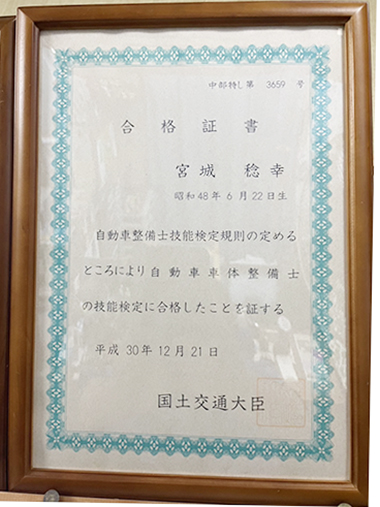 中部特し第 3659 号
合格証書
宮城 稔幸
昭和48年6月22日生
自動車整備士技能検定規則の定める
ところにより自動車車体整備士
の技能検定に合格したことを証する
平成30年12月21日
国土交通大臣